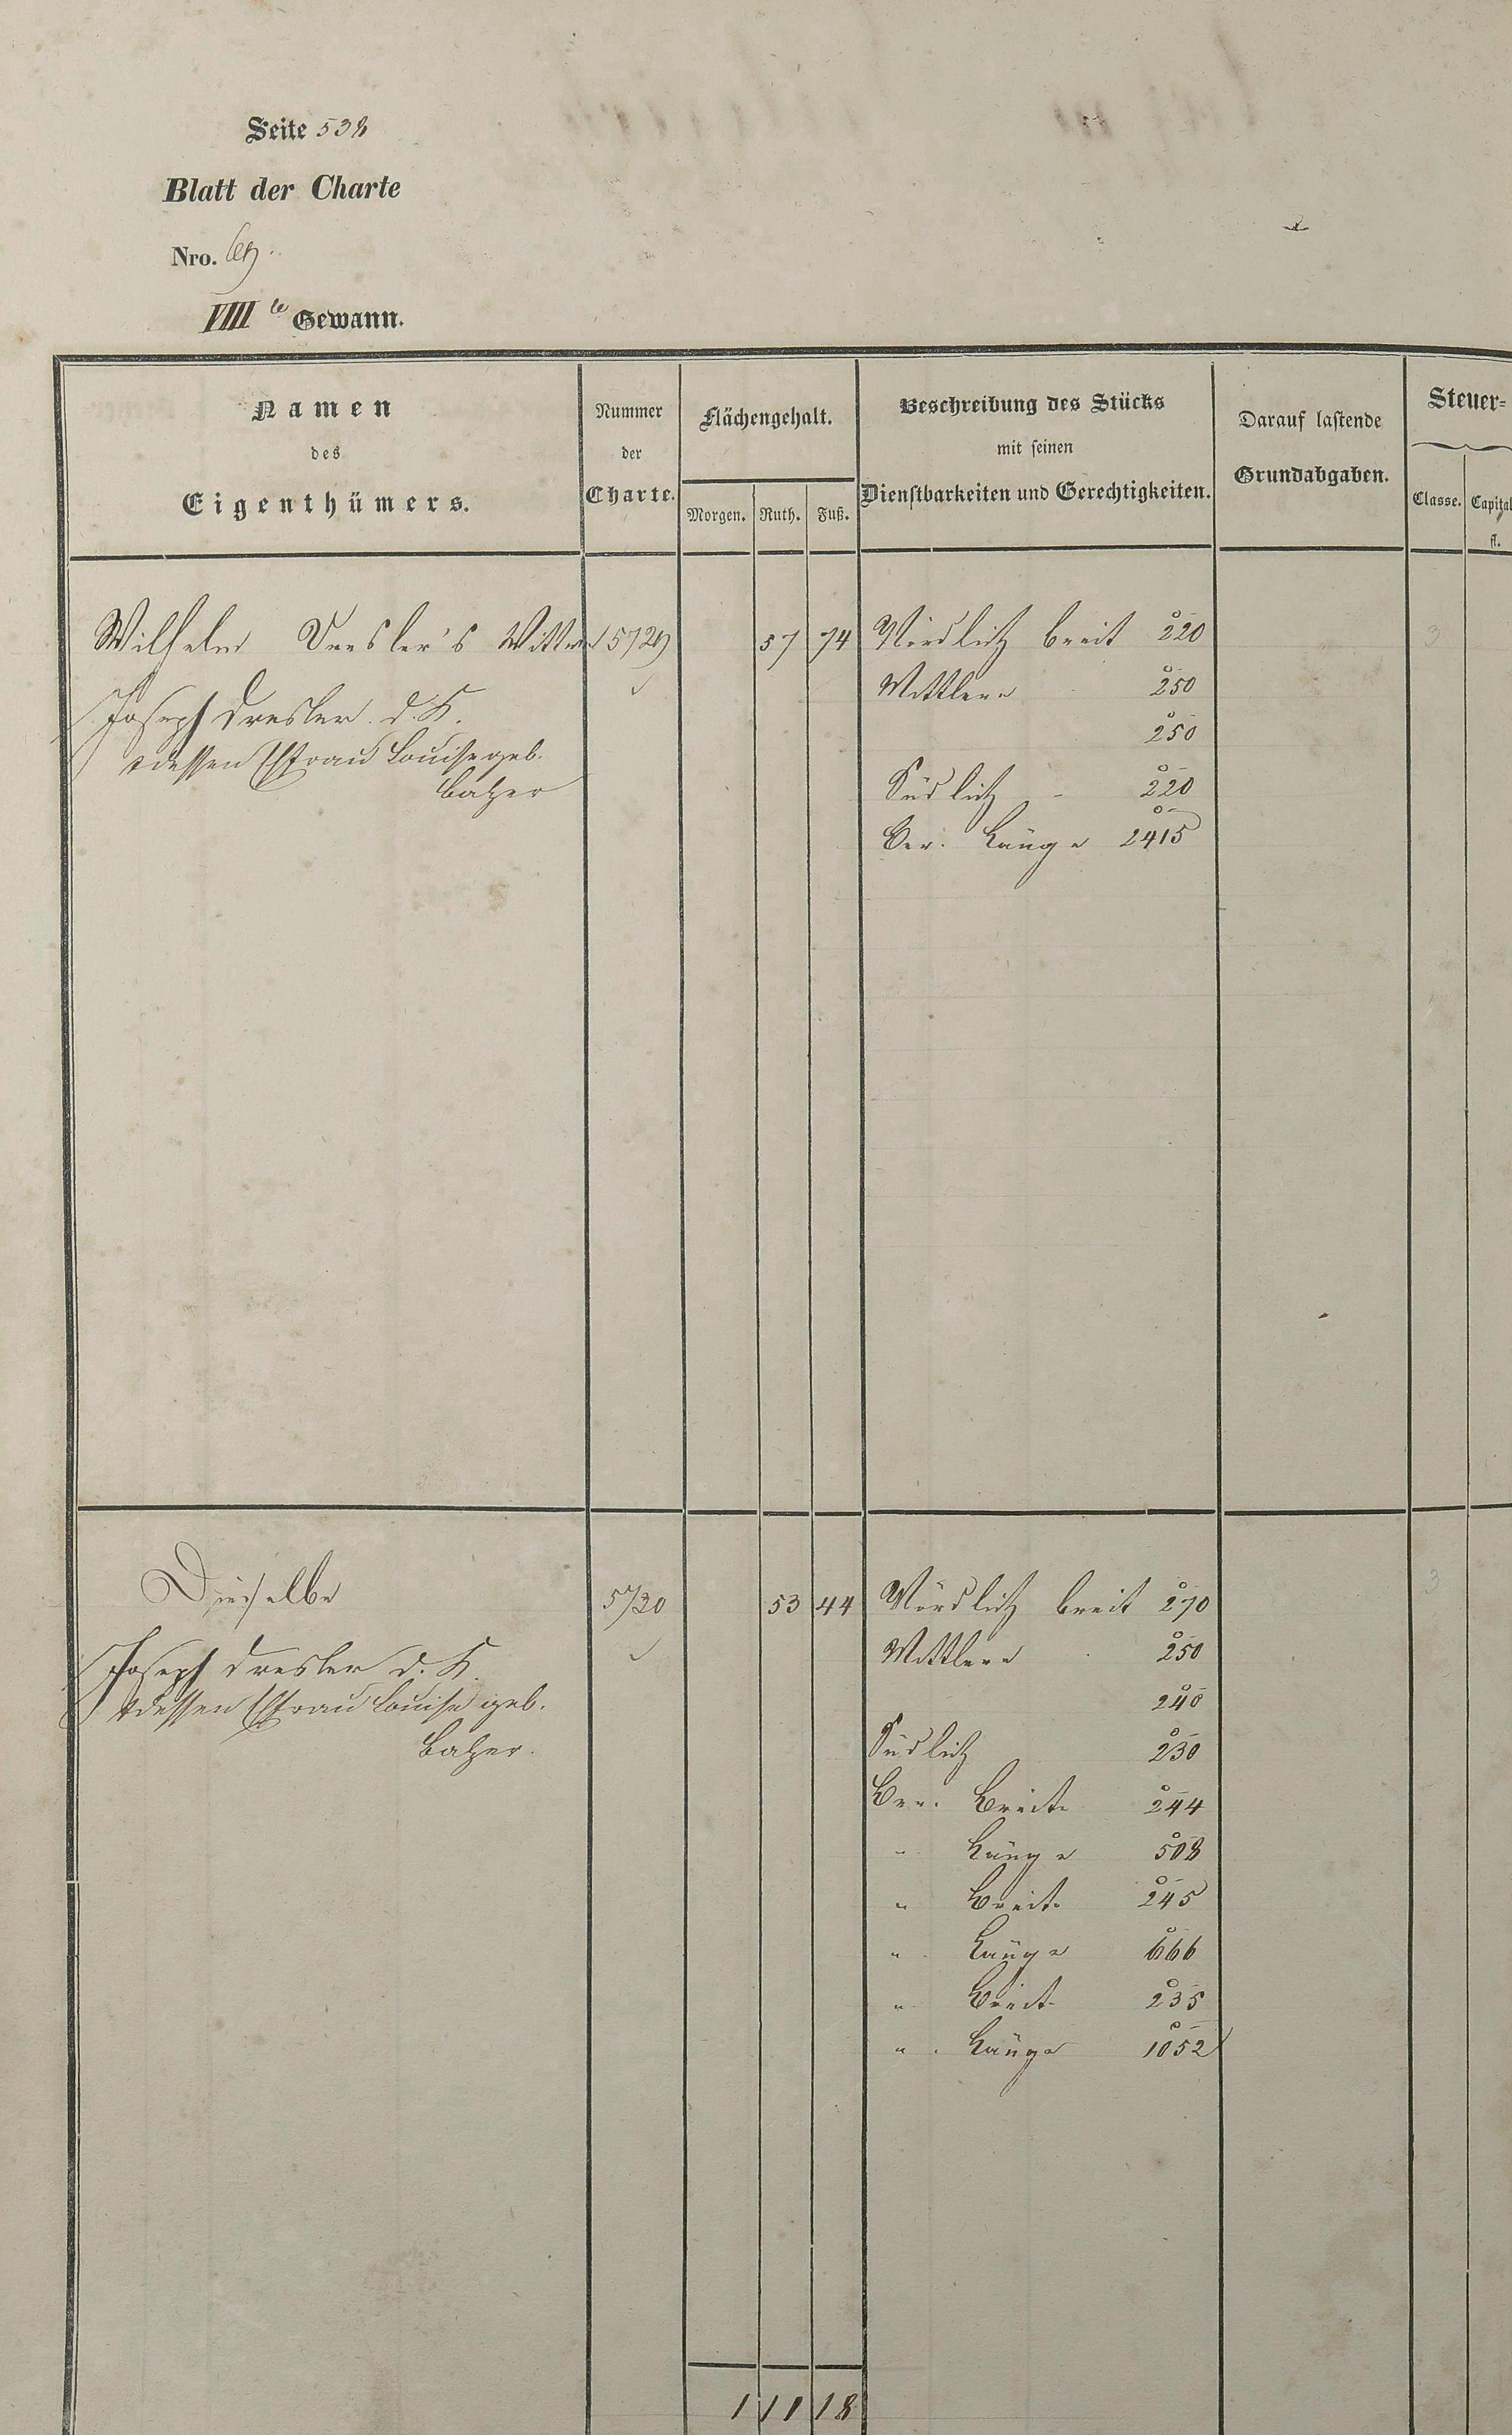 Seite 538
Blatt der Charte
Nro. 69.
VIII te Gewann.
Namen
des
Eigenthümers.
Nummer
der
Charte.
Flächengehalt.
Morgen. Ruth. Fuß.
Beschreibung des Stücks
mit seinen
Dienstbarkeiten und Gerechtigkeiten.
Darauf lastende
Grundabgaben.
Steuer-
Classe. Capital
fl.
Wilhelm Dresler's Wittwe 5729 57 74 Nördlich breit 220 3
Mittlere 250
Joseph Dresler d. K.
250
& dessen Ehfrau Louise geb.
Balzer
Südlich - 220
Ber. Länge 2415
Dieselbe 5730 53 44 Nördlich breit 270 3
Mittlere 250
Joseph Dresler d. K.
& dessen Ehfrau Louise geb.
240
Balzer.
Südlich 230
Ber. Breite 244
" Länge 508
" Breite 245
" Länge 666
" Breite 235
" Länge 1052
1 11 18